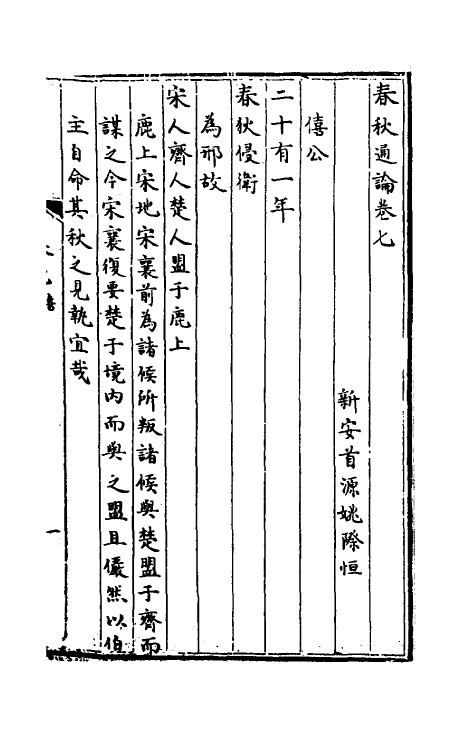 春秋通論卷七
新安首源姚際恒
僖公
二十有一年
春狄侵衛
為邢故
宋人齊人楚人盟于鹿上
鹿上宋地宋襄前為諸侯所叛諸侯與楚盟于齊而
謀之今宋襄復要楚于境内而與之盟且儼然以伯
主自命其秋之見執宜哉
一